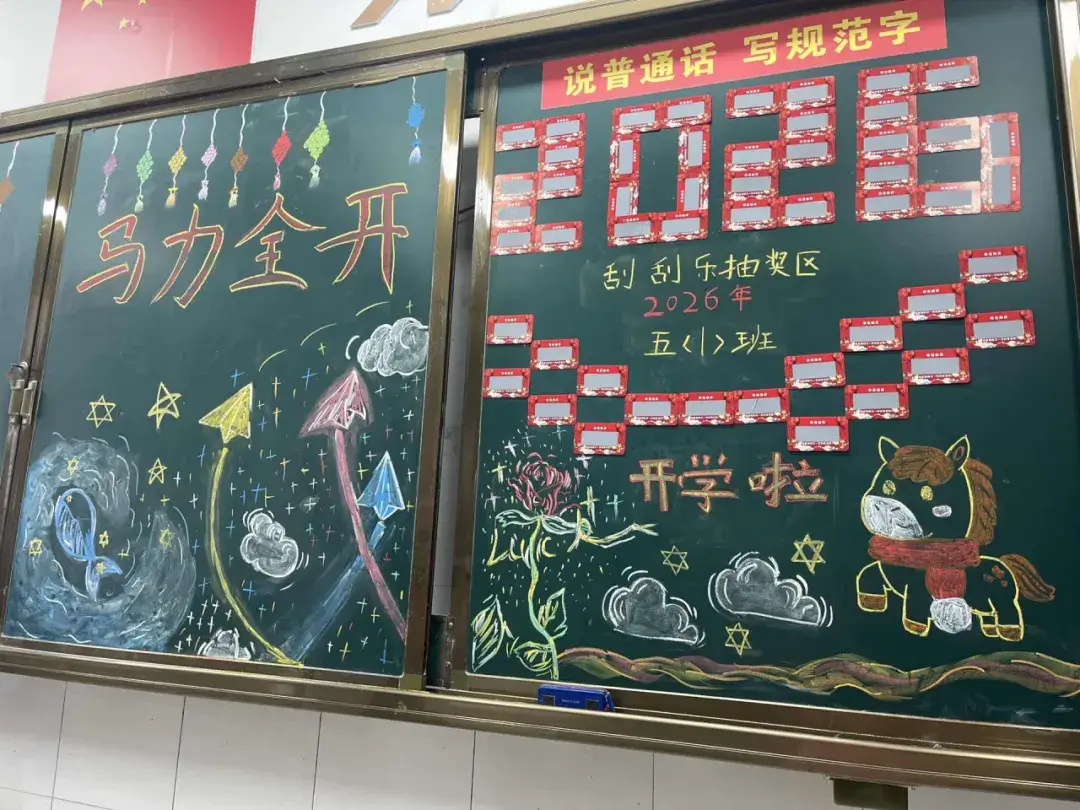 马力全开
说普通话 写规范字
2026
刮刮乐抽奖区
2026年
五<1>班
开学啦